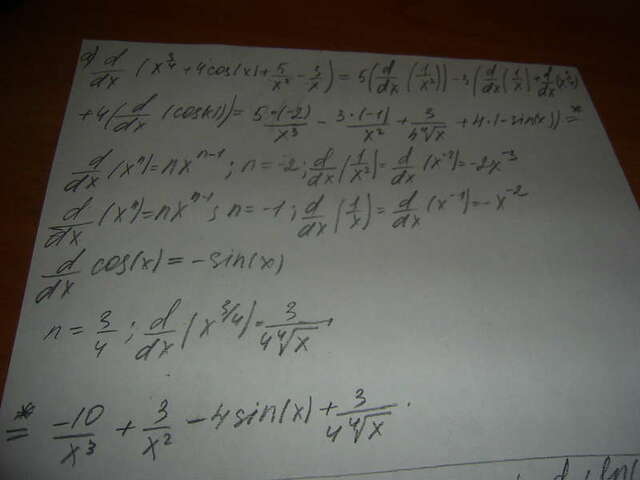 a) d/dx (x^(3/4) + 4cos(x) + 5/x² - 3/x) = 5(d/dx (1/x²)) - 3(d/dx (1/x) + d/dx(x^(3/4))
+ 4(d/dx (cos(x))) = 5·(-2)/x³ - 3·(-1)/x² + 3/(4⁴√x) + 4·(-sin(x)) =*
d/dx (xⁿ) = nxⁿ⁻¹; n = -2; d/dx (1/x²) = d/dx (x⁻²) = -2x⁻³
d/dx (xⁿ) = nxⁿ⁻¹; n = -1; d/dx (1/x) = d/dx (x⁻¹) = -x⁻²
d/dx cos(x) = -sin(x)
n = 3/4; d/dx (x^(3/4)) = 3/(4⁴√x)
=* -10/x³ + 3/x² - 4sin(x) + 3/(4⁴√x).